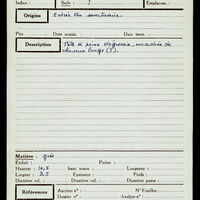 Indice : Série : ? Emplacem. :
Origins Entrée du sanctuaire.
Prov. Date acquis. : Date inv. :
Description Tête à peine dégrossie, encadrée de
cheveux longs (?).
Matière : grès
Enfoui : Patine :
Hauteur : 10,5 haut. trans. : Longueur :
Largeur : 8,5 Epaisseur : Poids :
Diamètre ext. : Diamètre col. : Diamètre panse :
Références Anciens n° : N° Fouilles :
Dossier n° : Analyse n° :